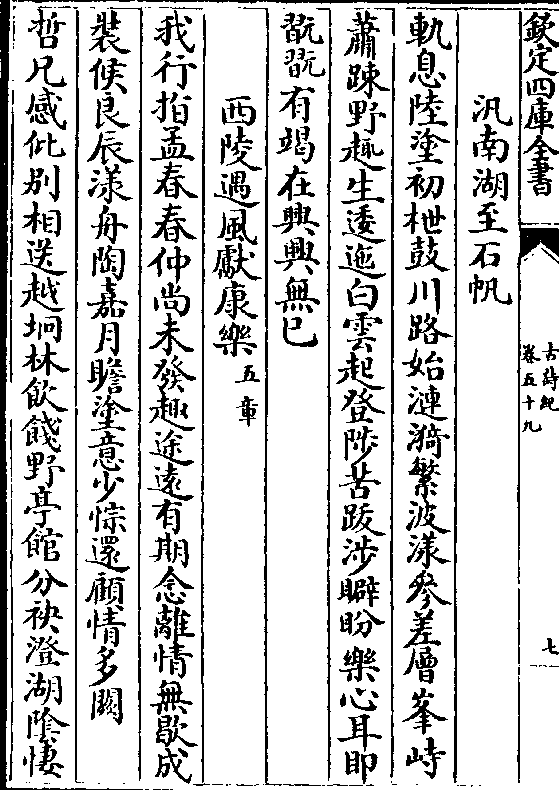 欽定四庫全書
古詩紀
卷五十九
七
汎南湖至石帆
軌息陸塗初枻鼓川路始漣漪繁波漾參差層峯峙
蕭踈野趣生逶迤白雲起登陟苦跋涉䁹盼樂心耳即
翫翫有竭在興興無已
西陵遇風獻康樂五章
我行指孟春春仲尚未發趣途遠有期念離情無歇成
裝候良辰漾舟陶嘉月瞻塗意少悰還顧情多闕
哲兄感仳别相送越坰林飲餞野亭館分袂澄湖陰悽